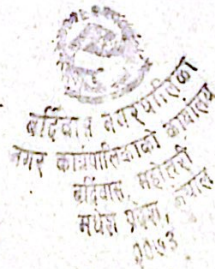 बर्दिबास नगरपालिका
नगर कार्यपालिकाको कार्यालय
बर्दिबास महोत्तरी
मधेश प्रदेश, नेपाल
२०७३